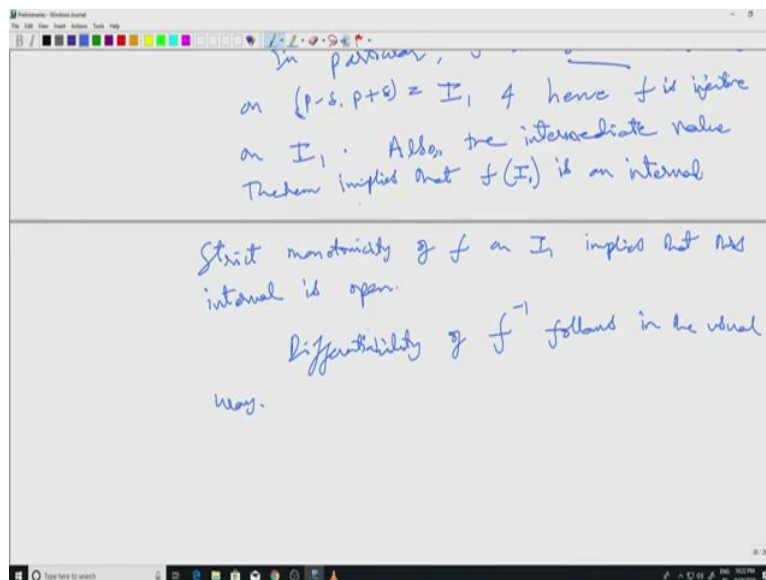 Preliminaries - Windows Journal
File Edit View Insert Actions Tools Help
In particular,
on (p-δ, p+δ) = I₁ & hence f is injective
on I₁. Also, the intermediate value
Theorem implies that f(I₁) is an interval
Strict monotonicity of f on I₁ implies that this
interval is open.
Differentiability of f⁻¹ follows in the usual
way.
Type here to search
ENG